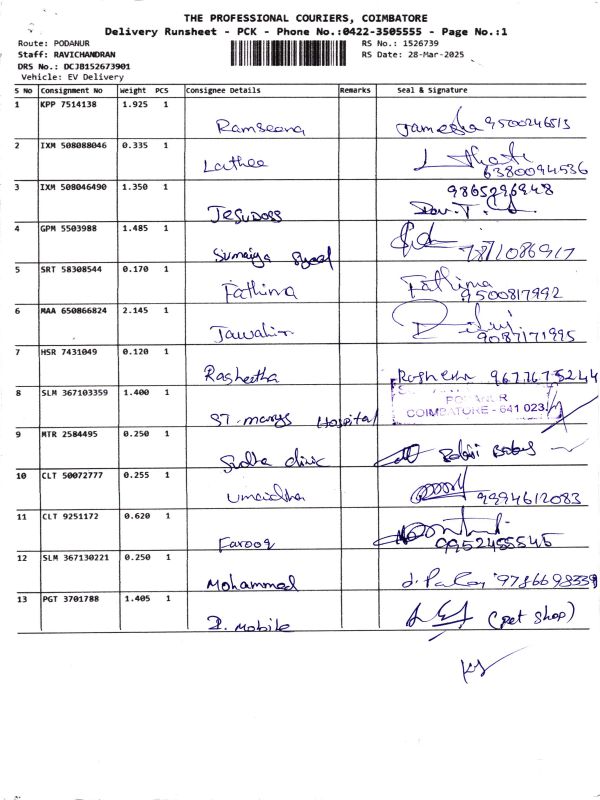 THE PROFESSIONAL COURIERS, COIMBATORE
Delivery Runsheet - PCK - Phone No.:0422-3505555 - Page No.:1
Route: PODANUR RS No.: 1526739
Staff: RAVICHANDRAN RS Date: 28-Mar-2025
DRS No.: DCJB152673901
Vehicle: EV Delivery
S No Consignment No Weight PCS Consignee Details Remarks Seal & Signature
1 KPP 7514138 1.925 1
Ramseena 9500246513
2 IXM 508088046 0.335 1
Lathee
6380094536
3 IXM 508046490 1.350 1 9865296948
Jesudoss
4 GPM 5503988 1.485 1
Sumaiya Syed 7871086917
5 SRT 58308544 0.170 1 Fathima
Fathima 9500817992
6 MAA 650866824 2.145 1
Jawahir 9087171995
7 HSR 7431049 0.120 1
Rasheetha 9677675244
8 SLM 367103359 1.400 1 PODANUR
ST. marys Hospital COIMBATORE - 641 023
9 MTR 2584495 0.250 1
Sudha clinic
10 CLT 50072777 0.255 1
Umaidha 9994612083
11 CLT 9251172 0.620 1
Farooq 9952455545
12 SLM 367130221 0.250 1
Mohammed 9786698339
13 PGT 3701788 1.405 1
I. mobile (pet shop)